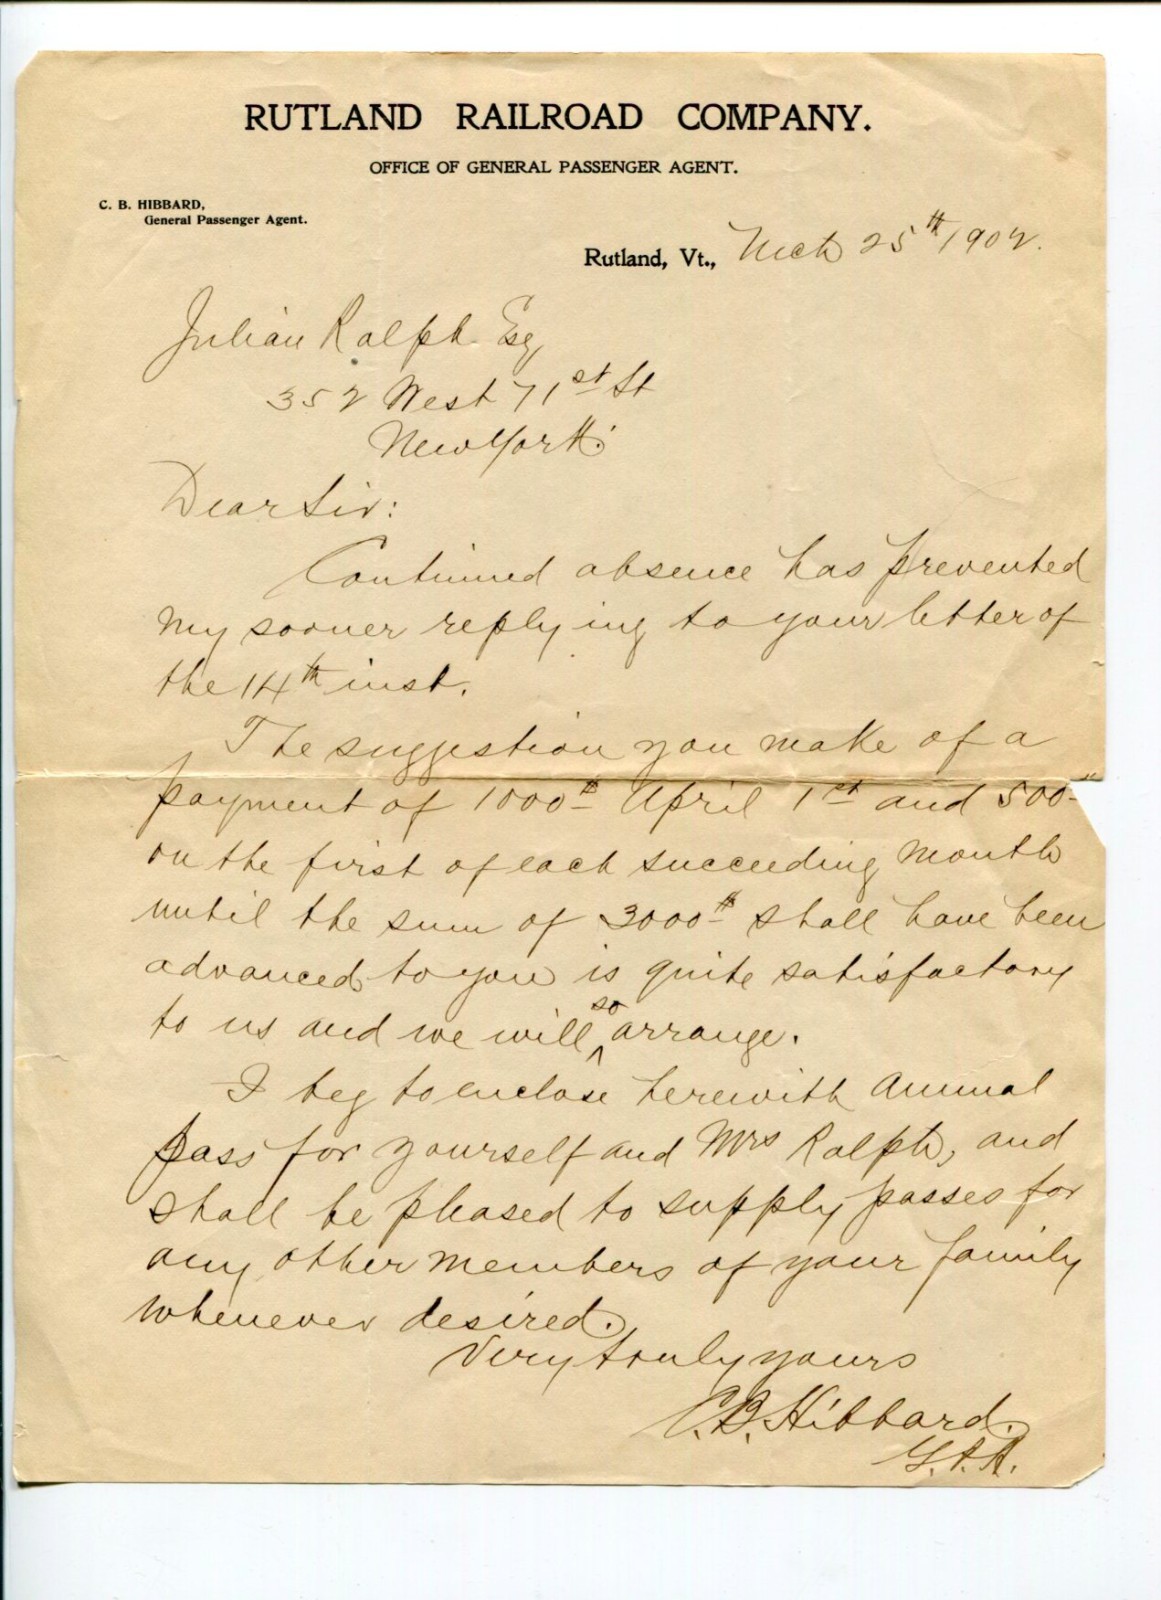 RUTLAND RAILROAD COMPANY.
OFFICE OF GENERAL PASSENGER AGENT.
C. B. HIBBARD,
General Passenger Agent.
Rutland, Vt., Mch 25th 1902.
Julian Ralph Esq
352 West 71st St
New York.
Dear Sir:
Continued absence has prevented
my sooner replying to your letter of
the 14th inst.
The suggestion you make of a
payment of 1000 April 1st and 500
on the first of each succeeding month
until the sum of 3000 shall have been
advanced to you is quite satisfactory
to us and we will so arrange.
I beg to enclose herewith annual
pass for yourself and Mrs Ralph, and
shall be pleased to supply passes for
any other members of your family
whenever desired.
Very truly yours
C.B. Hibbard.
G.P.A.